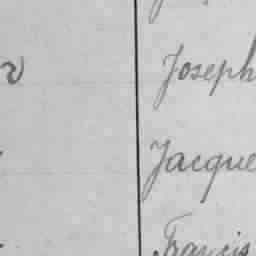 Joseph
Jacque
Francis